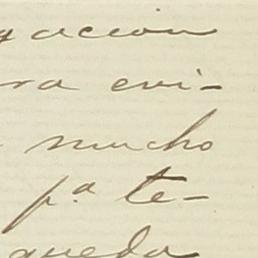 gacion
ra evi-
mucho
p.ª te-
queda